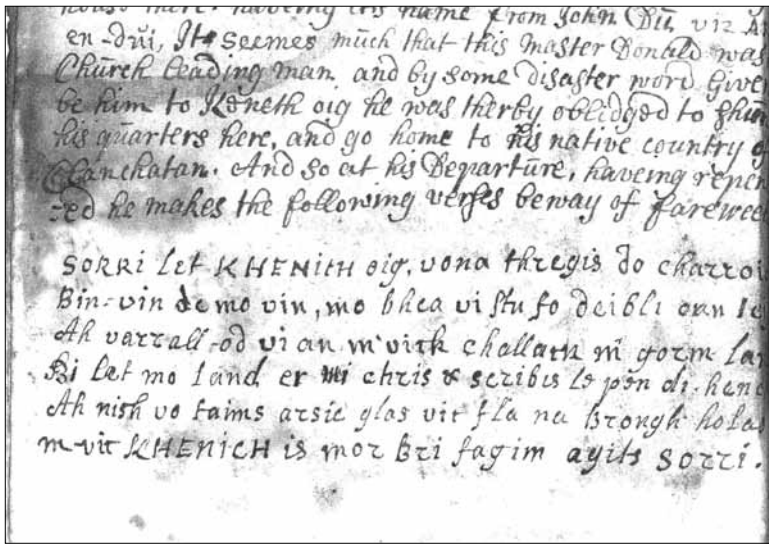 house there. haveing its name from John Dŭ, viz
en-dŭi, It seemes mŭch that this Master Donald was
Chŭrch leading man and by some disaster word Given
be him to Keneth oig he was therby oblidged to shŭn
his qŭarters here, and go home to his native country
Clanchatan. And so at his Departŭre, haveing
he makes the following verses beway of
SORRI let KHENICH oig, vona thregis do
Bin-vin de mo vin, mo bhea vi stu fo deibli
Ah vi an m'vick challath m gorm
Bi Læt mo land er mi chris & scribis le pen di
Ah nish vo taims arsie glas vic fla na Brongh
m-vic KHENICH is mor Bri fagim ayits SORRI.